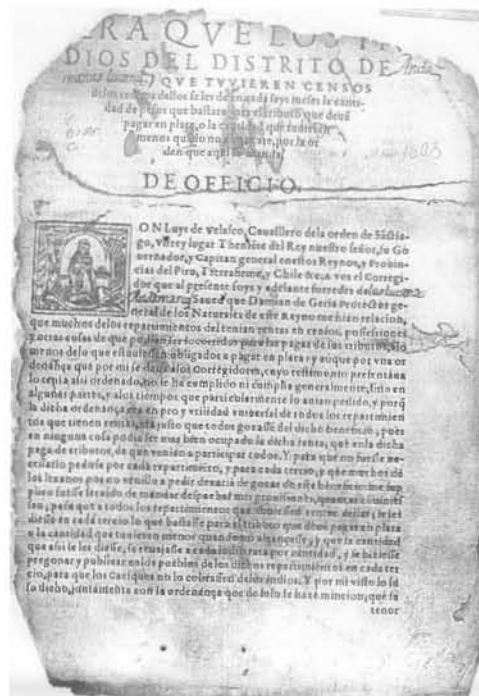 RA QVE LOS IN
DIOS DEL DISTRITO DE Anda
QVE TVVIEREN CENSOS
delos reditos dellos se les de en cada seys meses la canti-
dad de pesos que bastare para el tributo que deuẽ
pagar en plata, o la cantidad que tuuieren
menos quando no alcançare, por la or
den que aqui se manda.
1603
DE OFFICIO.
DON Luys de Velasco, Cauallero dela orden de Sãctia-
go, Virrey lugar Theniẽte del Rey nuestro señor, su Go
uernador, y Capitan general enestos Reynos, y Prouin-
cias del Piru, Tierrafirme, y Chile &c. a vos el Corregi-
dor que al presente soys y adelante fueredes de
Saued que Damian de Geria Protector ge-
neral de los Naturales de este Reyno me hizo relacion,
que muchos delos repartimientos del tenian rentas en censos, possessiones
y otras cosas de que podian ser socorridos para las pagas de sus tributos, alo
menos delo que estuuiessen obligados a pagar en plata: y aũque por vna or
denãça que por mi se dio alos Corregidores, cuyo testimonio presentaua
lo tenia assi ordenado, no se ha cumplido ni cumplia generalmente, sino en
algunas partes, y alos tiempos que particularmente lo auian pedido, y porq̃
la dicha ordenança era en pro y vtilidad vniuersal de todos los repartimien
tos que tienen rentas, era justo que todos gozassẽ del dicho beneficio, pues
en ninguna cosa podia ser mas bien ocupada la dicha renta, que enla dicha
paga de tributos, de que venian a participar todos. Y para que no fuesse ne-
cessario pedirse por cada repartimiẽto, y para cada tercio, y que muchos de
los lexanos por no venillo a pedir dexariã de gozar de este beneficio: me sup
plico fuesse seruido de mandar despachar mis prouisiones,
para que a todos los repartimientos que tuuiessen rentas dellas, se les
diesse en cada tercio lo que bastasse para el tributo que deuẽ pagar en plata
o la cantidad que tuuieren menos quando no alcançasse, y que la cantidad
que assi se les diesse, se rebajasse a cada indio rata por cantidad, y se hiziesse
pregonar y publicar enlos pueblos de los dichos repartimientos en cada ter
cio, para que los Caciques no lo cobrassen delos indios. Y por mi visto lo su
so dicho, juntamente con la ordenança que de suso se haze mincion, que su
tenor